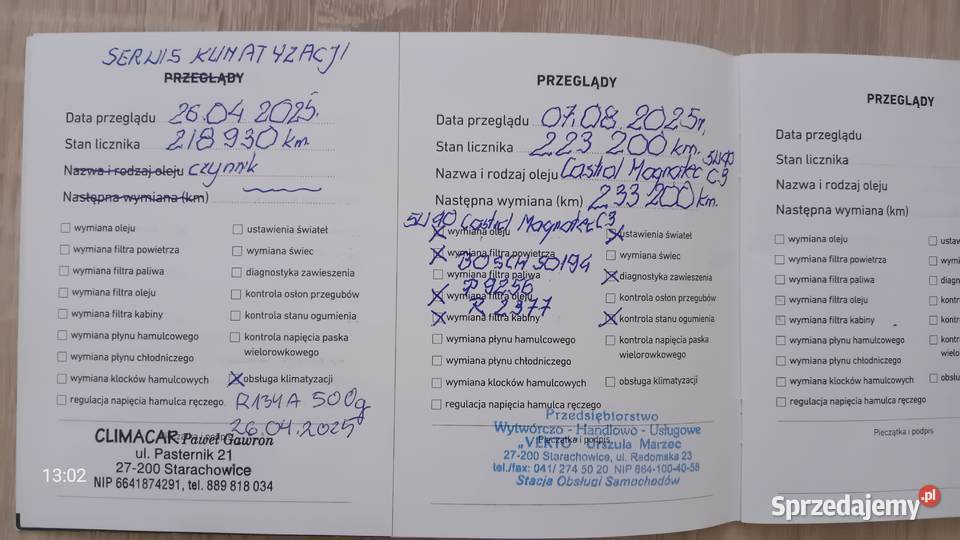 SERWIS KLIMATYZACJI
PRZEGLĄDY
Data przeglądu 26.04.2025.
Stan licznika 218 930 km
Nazwa i rodzaj oleju czynnik
Następna wymiana (km)
wymiana oleju
wymiana filtra powietrza
wymiana filtra paliwa
wymiana filtra oleju
wymiana filtra kabiny
wymiana płynu hamulcowego
wymiana płynu chłodniczego
wymiana klocków hamulcowych
regulacja napięcia hamulca ręcznego
ustawienia świateł
wymiana świec
diagnostyka zawieszenia
kontrola osłon przegubów
kontrola stanu ogumienia
kontrola napięcia paska
wielorowkowego
obsługa klimatyzacji
R134A 500g
26.04.2025
CLIMACAR Paweł Gawron
ul. Pasternik 21
27-200 Starachowice
NIP 6641874291, tel. 889 818 034
13:02
PRZEGLĄDY
Data przeglądu 07.08.2025r.
Stan licznika 223 200 km.
Nazwa i rodzaj oleju Castrol Magnatec 5W40 C3
Następna wymiana (km) 233 200 km.
5W40 Castrol Magnatec C3
wymiana oleju
wymiana filtra powietrza
BOSCH S0194
wymiana filtra paliwa
P 9256
wymiana filtra oleju
K 2377
wymiana filtra kabiny
wymiana płynu hamulcowego
wymiana płynu chłodniczego
wymiana klocków hamulcowych
regulacja napięcia hamulca ręcznego
ustawienia świateł
wymiana świec
diagnostyka zawieszenia
kontrola osłon przegubów
kontrola stanu ogumienia
kontrola napięcia paska
wielorowkowego
obsługa klimatyzacji
Pieczątka i podpis
Przedsiębiorstwo
Wytwórczo - Handlowo - Usługowe
„VERTO" Urszula Marzec
27-200 Starachowice, ul. Radomska 23
tel./fax: 041/ 274 50 20 NIP 664-100-40-58
Stacja Obsługi Samochodów
PRZEGLĄDY
Data przeglądu
Stan licznika
Nazwa i rodzaj oleju
Następna wymiana (km)
wymiana oleju
wymiana filtra powietrza
wymiana filtra paliwa
wymiana filtra oleju
wymiana filtra kabiny
wymiana płynu hamulcowego
wymiana płynu chłodniczego
wymiana klocków hamulcowych
regulacja napięcia hamulca ręcznego
Pieczątka i podpis
Sprzedajemy.pl